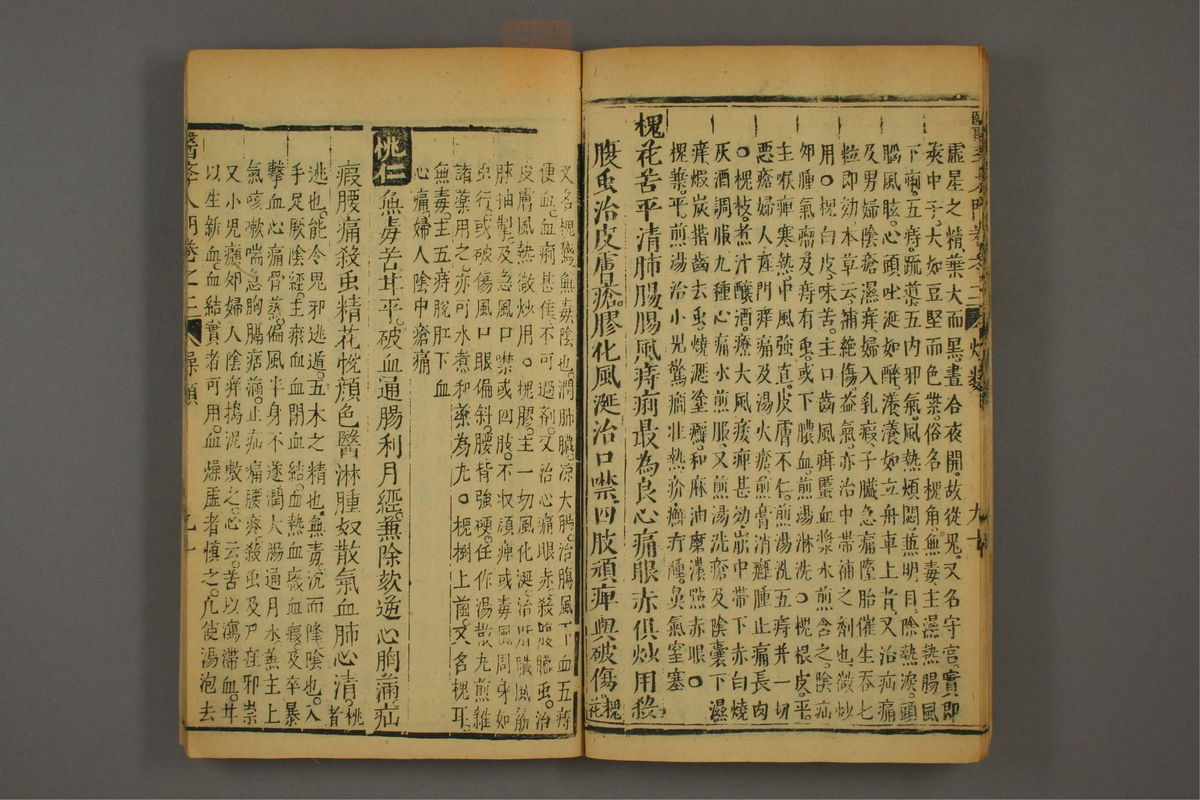 虛星之精葉大而黑晝合夜開故從鬼又名守宮實即
莢中子大如豆堅而色紫俗名槐角無毒主濕熱腸風
下痢五痔疏導五內邪氣風熱煩悶兼明目除熱淚頭
腦風眩心頭吐涎如醉漾漾如立舟車上者又治疝痛
及男婦陰瘡濕痒婦入乳瘕子臟急痛墮胎催生吞七
粒即効本草云補絕傷益氣亦治中帶補之劑也微炒
用○槐白皮味苦主口齒風疳䘌血漿水煎含之陰疝
卵腫氣瘤及痔有虫或下膿血煎湯淋洗○槐根皮平
主喉痺寒熱中風強直皮膚不仁煎湯洗五痔并一切
惡瘡婦人產門痒痛及湯火瘡煎膏消癰腫止痛長肉
○槐枝煮汁釀酒療大風痿痺甚効崩中帶下赤白燒
灰酒調服九種心痛水煎服又煎湯洗瘡及陰囊下濕
痒煅炭揩齒去虫燒瀝塗癬和麻油磨濃點赤眼○
槐葉平煎湯治小兒驚癇壯熱疥癬疔腫鼻氣窒塞
槐花苦平清肺腸腸風痔痢最為良心痛眼赤俱炒用殺
腹虫治皮膚瘡膠化風涎治口噤四肢頑痺與破傷槐花
又名槐鵝無毒陰也潤肺臟涼大腸治腸風下血五痔
便血血痢甚佳不可過劑又治心痛眼赤殺腹臟虫治
皮膚風熱微炒用○槐膠主一切風化涎治肝臟風筋
脉抽掣及急風口噤或四肢不收頑痺或毒風周身如
虫行或破傷風口眼偏斜腰背強硬任作湯散丸煎雜
諸藥用之亦可水煮和藥為丸○槐樹上菌又名槐耳
無毒主五痔脫肛下血
心痛婦人陰中瘡痛
桃仁無毒苦甘平破血通腸利月經兼除欬逆心胸滿疝
瘕腰痛殺虫精花悅顏色醫淋腫奴散氣血肺心清桃者
逃也能令鬼邪逃遁五木之精也無毒沉而降陰也入
手足厥陰經主瘀血血閉血結血熱血癥血瘕及卒暴
擊血心痛骨蒸偏風半身不遂潤大腸通月水兼主上
氣咳嗽喘急胸膈痞滿止疝痛腰疼殺虫及尸疰邪祟
又小兒癲卵婦人陰痒搗泥敷之心云苦以瀉滯血甘
以生新血血結實者可用血燥虛者慎之凡使湯泡去